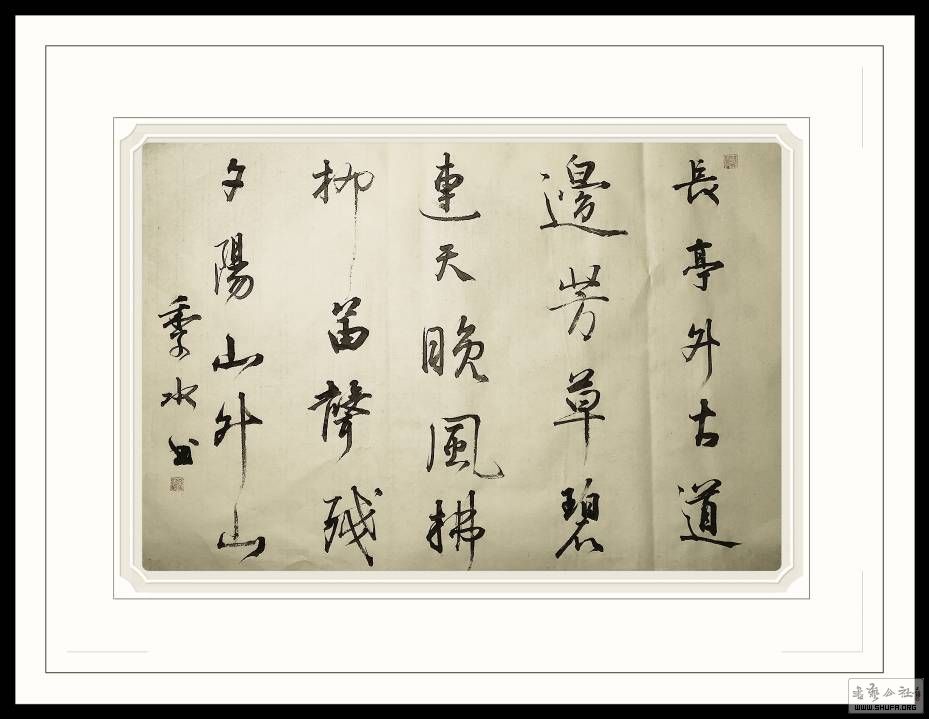 長亭外古道
邊芳草碧
連天晚風拂
柳笛聲残
夕陽山外山
季水书
书艺公社
WWW.SHUFA.ORG